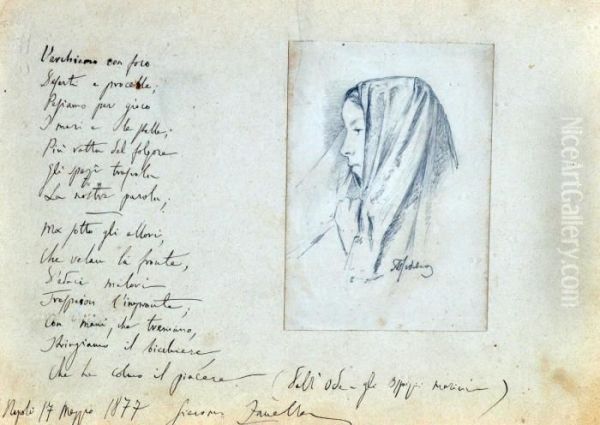 Varchiamo con foco
Deserti e procelle;
Pesiamo per gioco
I mari e le stelle;
Più ratta del folgore
Gli spazi trasvola
La nostra parola;
Ma sotto gli allori,
Che velan la fronte,
D'edaci malori
Trasparion l'impronte;
Con mani, che tremano,
Stringiamo il bicchiere,
Che ha colmo il piacere.
(Dall'Ode - gli Ospizi marini)
Napoli 17 Maggio 1877 Giacomo Zanella
NiceArtGallery.com